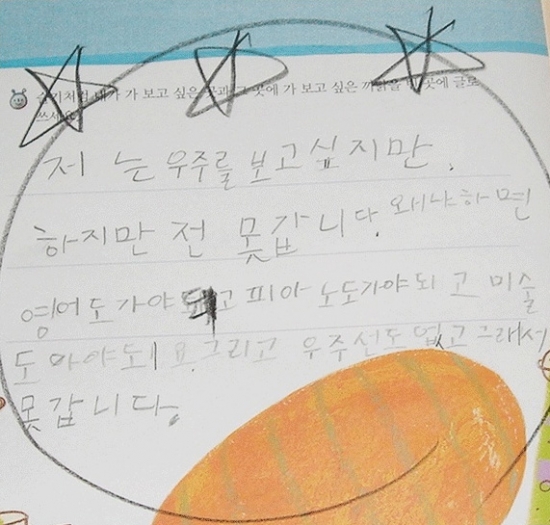 슬기처럼 내가 가 보고 싶은 곳과 그 곳에 가 보고 싶은 까닭을 빈 곳에 글로
쓰세요.
저 는 우주를 보고싶지만.
하지만 전 못갑니다. 왜냐하면
영어도가야되고 피아노도가야되고 미술
도 마야되 요. 그리고 우주선도 없고 그래서
못갑니다.